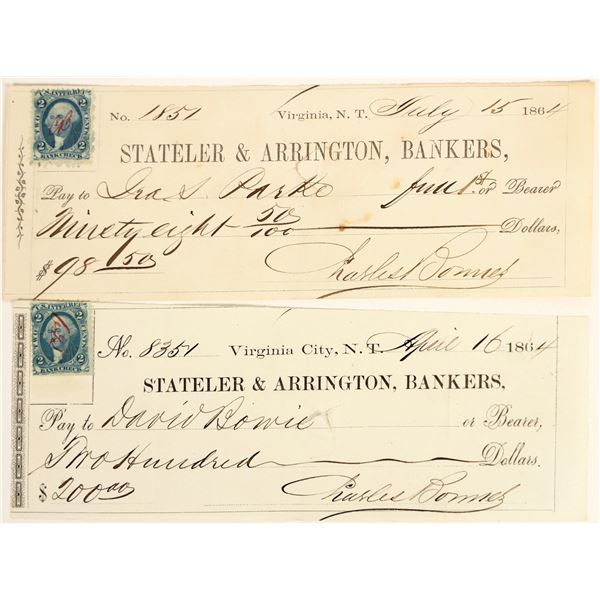 U.S. INTER. REV.
2 2
TWO CENTS
BANK CHECK
No. 1851 Virginia, N. T. July 15 1864
STATELER & ARRINGTON, BANKERS,
Pay to Ira S. Parke or Bearer
Ninety eight 50/100 Dollars,
$ 98 50 Charles Bonner
U.S. INTER. REV.
2 2
TWO CENTS
BANK CHECK
No. 8351 Virginia City, N. T. April 16 1864
STATELER & ARRINGTON, BANKERS,
Pay to David Bowie or Bearer,
Two Hundred Dollars.
$ 200.00 Charles Bonner